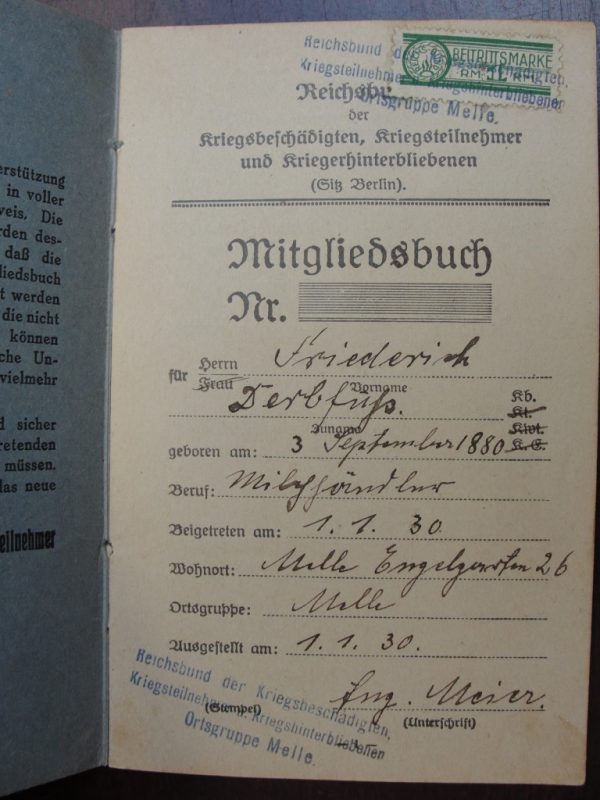 erstützung
in voller
weis. Die
rden des-
daß die
liedsbuch
t werden
die nicht
können
che Un-
vielmehr
d sicher
tretenden
müssen.
das neue
eilnehmer
BEITRITTSMARKE
RM.
Reichsbund der Kriegsbeschädigten,
Kriegsteilnehmer u. Kriegshinterbliebenen
Ortsgruppe Melle.
Reichsbu
der
Kriegsbeschädigten, Kriegsteilnehmer
und Kriegerhinterbliebenen
(Sitz Berlin).
Mitgliedsbuch
Nr.
für Herrn Friederich
Frau Vorname
Derbfuß. Kb.
Zuname Kt.
geboren am: 3 September 1880 Kwt.
K.E.
Beruf: Milchhändler
Beigetreten am: 1. 1. 30
Wohnort: Melle Engelgarten 26
Ortsgruppe: Melle
Ausgestellt am: 1. 1. 30.
Reichsbund der Kriegsbeschädigten,
Kriegsteilnehmer u. Kriegshinterbliebenen
Ortsgruppe Melle.
Meier.
(Stempel) (Unterschrift)